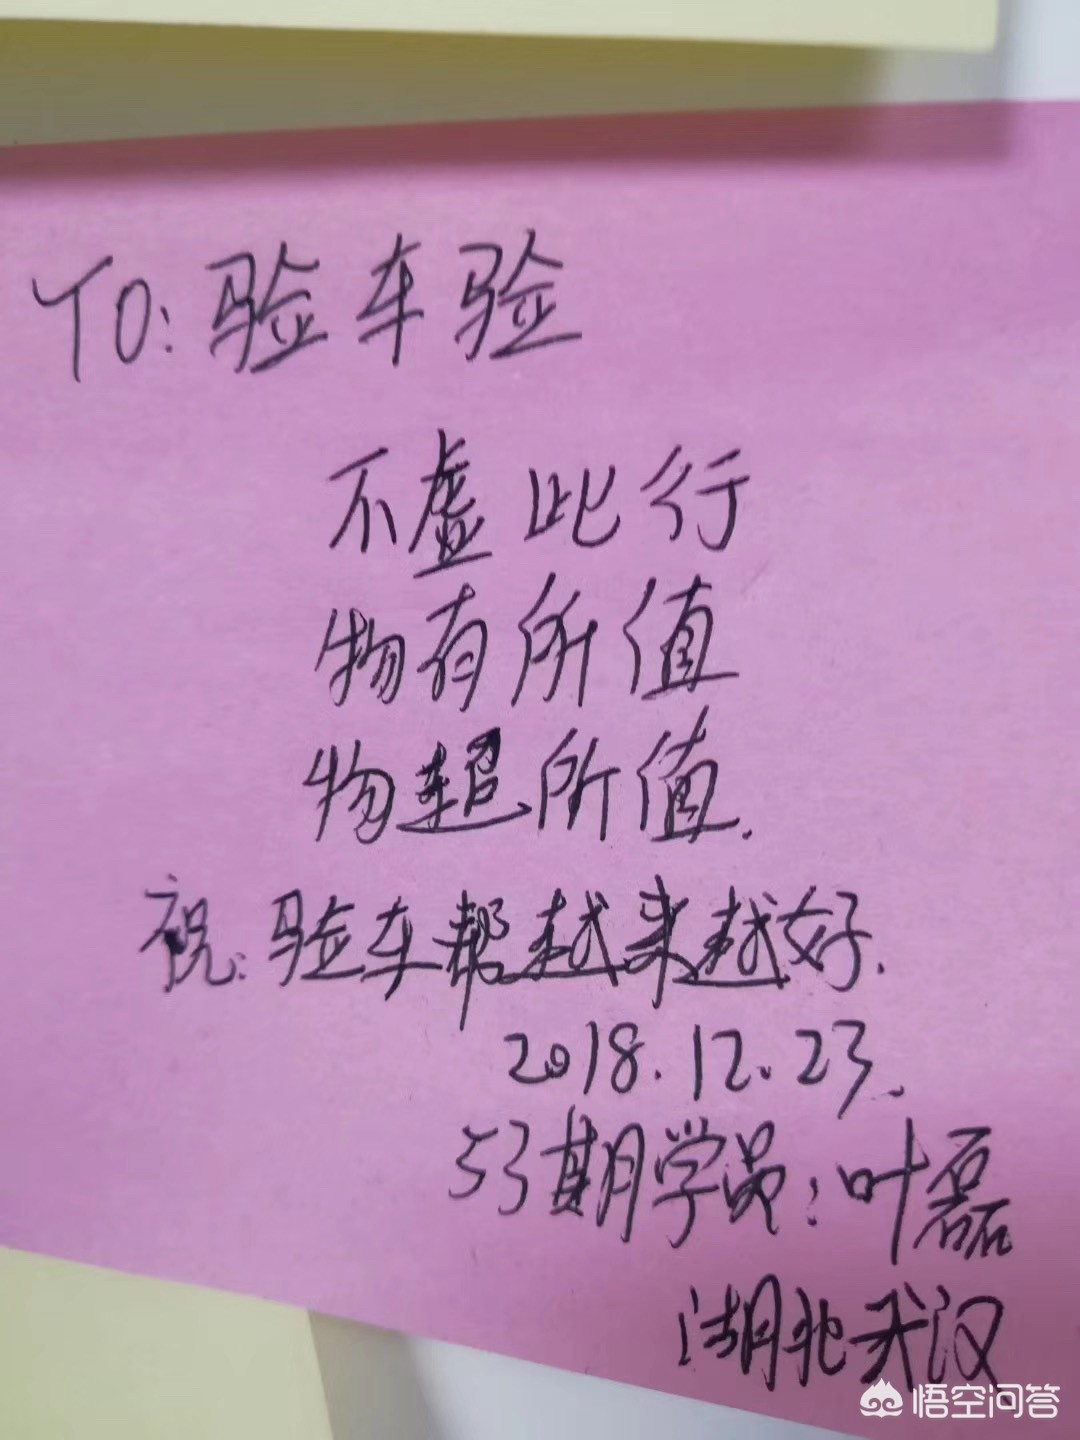 TO: 验车验
不虚此行
物有所值
物超所值.
祝:验车帮越来越好.
2018.12.23.
53期学员:叶磊
湖北武汉
悟空问答